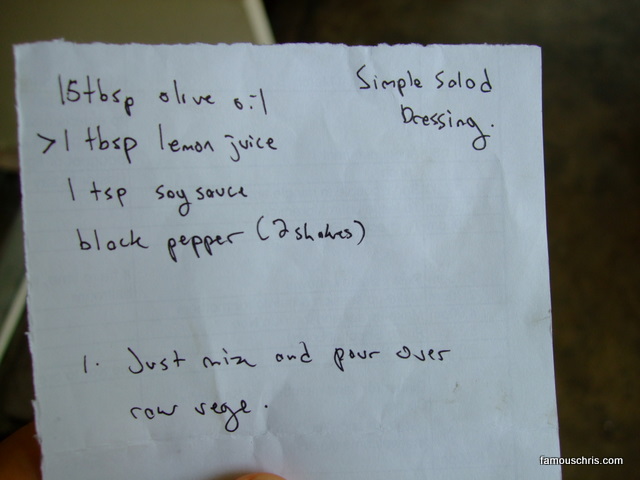 Simple Salad
Dressing.
15tbsp olive oil
>1 tbsp lemon juice
1 tsp soy sauce
black pepper (2 shakes)
1. Just mix and pour over
raw vege.
famouschris.com